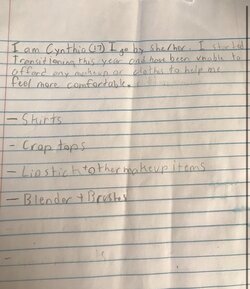 I am Cynthia (17) I go by she/her. I started
Transitioning this year and have been unable to
afford any makeup or cloths to help me
feel more comfortable.
- Skirts
- Crop tops
- Lipstick + other makeup items
- Blender + Brushes